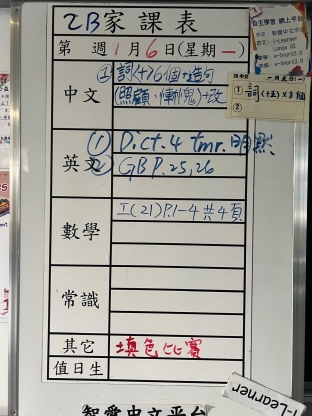 2B家課表
第 週1月6日(星期一)
中文
①詞(十)6個+造句
(照顧、慚愧)+改
英文
① Dict. 4 tmr. 明默
② GB P.25,26
數學
工(21)P.1-4共4頁
常識
其它
填色比賽
值日生
自主學習 網上平台
①詞(十五)×8個
②
i-Learner
智愛中文平台